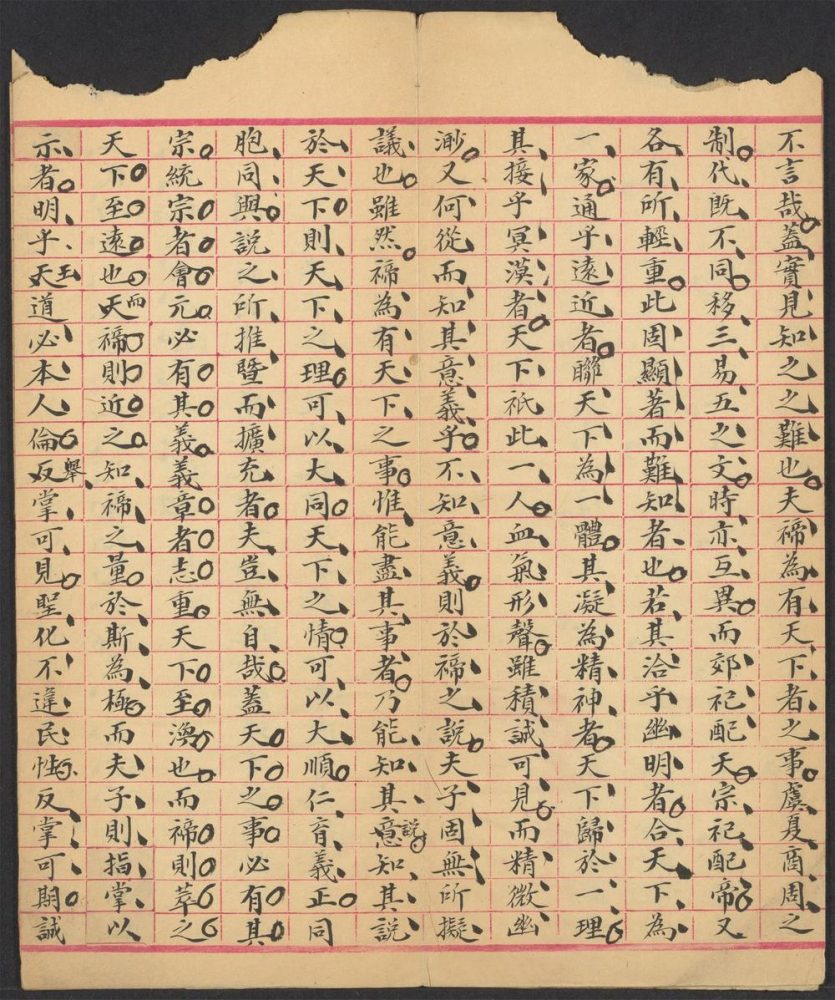 不言哉蓋實見知之之難也夫禘為有天下者之事虞夏商周之
制代既不同移三易五之文時亦互異而郊祀配天宗祀配帝又
各有所輕重此固顯著而難知者也若其洽乎幽明者合天下為
一家通乎遠近者聯天下為一體其凝為精神者天下歸於一理
其接乎冥漠者天下祇此一人血氣形聲雖積誠可見而精微幽
渺又何從而知其意義乎不知意義則於禘之說夫子固無所擬
議也雖然禘為有天下之事惟能盡其事者乃能知其意說知其說
於天下則天下之理可以大同天下之情可以大順仁育義正同
胞同與說之所推暨而擴充者夫豈無自哉蓋天下之事必有其
宗統宗者會元必有其義義章者志重天下至渙也而禘則萃之
天下至遠也天而禘則近之知禘之量於斯為極而夫子則指掌以
示者明乎天王道必本人倫反舉掌可見聖化不違民性反掌可期誠